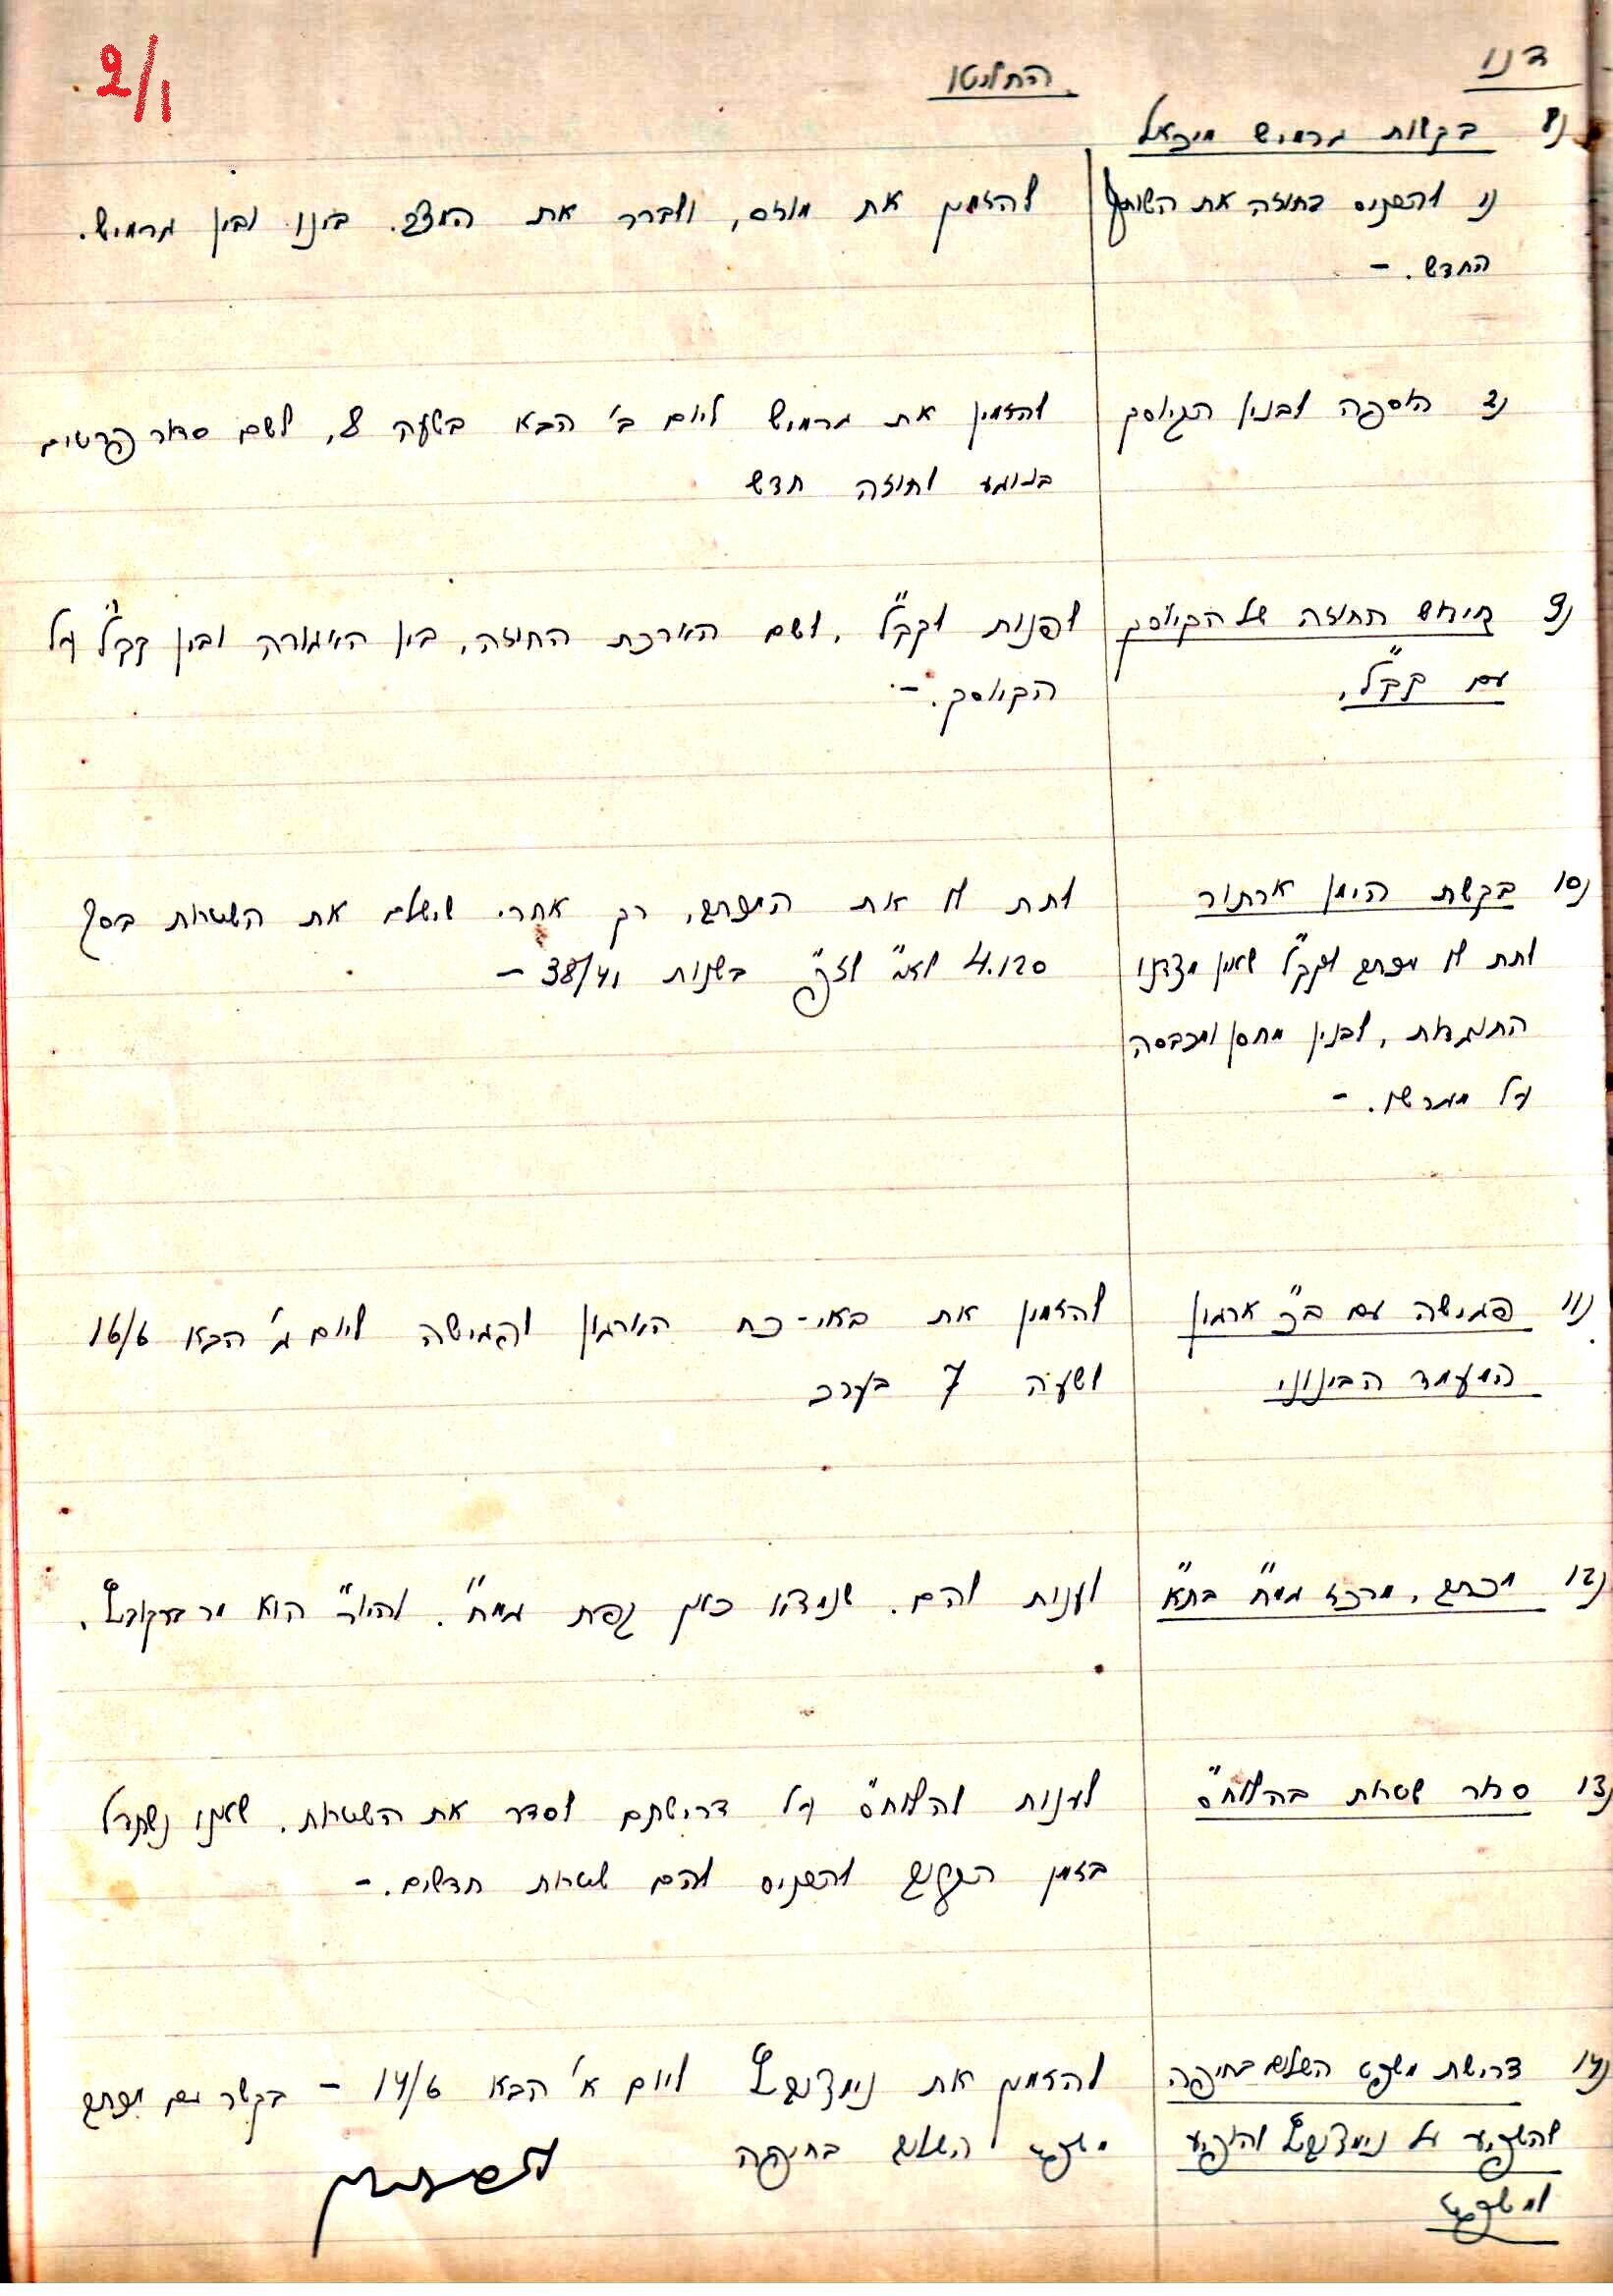 2/1
דנו
החליטו
8) בקשות גרמיש מיכאל
1) להכניס בחוזה את השותף
החדש. –
להזמין את מוזס, ולברר את המצב. ביננו ובין גרמיש.
2) הוספה לבנין הקיוסק
להזמין את גרמיש ליום ב' הבא בשעה 8, לשם סדור פרטים
בנוגע לחוזה חדש
9) חידוש החוזה של הקיוסק
עם קק"ל.
לפנות לקק"ל, לשם הארכת החוזה, בין האגודה ובין קק"ל על
הקיוסק. –
10) בקשת הימן ארתור
לתת לו מכתב לקק"ל שאין מצדנו
התנגדות, לבנין מחסן ומכבסה
על מגרשו. –
לתת לו את המכתב, רק אחרי שישלם את השטרות בסך
4.120 לא"י לזכ' בשנות 38/41 –
11) פגישה עם ב"כ ארגון
המעמד הבינוני
להזמין את באי-כח הארגון לפגישה ליום ג' הבא 16/6
לשעה 7 בערב
12) מכתב, מרכז גמ"ח בת"א
לענות להם. שנמצאו כאן קפת גמ"ח. והיו"ר הוא מר ברקוביץ.
13) סדור שטרות בהלוה"ס
לענות להלוה"ס על דרישתם לסדר את השטרות. שאנו נשתדל
בזמן הקרוב להכניס להם שטרות חדשים. –
14) דרישת משפט השלום בחיפה
להשפיע על ניימדוביץ להופיע
למשפט
להזמין את ניימדוביץ ליום א' הבא 14/6 – בקשר עם מכתב
משפט השלום בחיפה